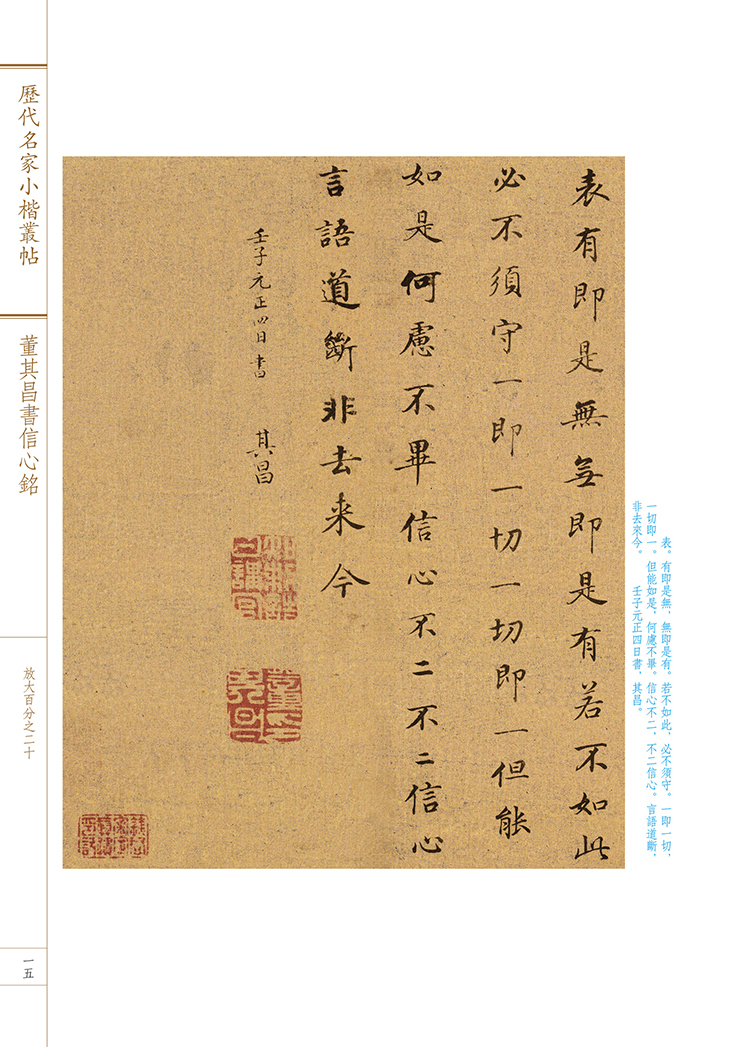 表。有即是無，無即是有。若不如此，必不須守。一即一切，
一切即一。但能如是，何慮不畢。信心不二，不二信心。言語道斷，
非去來今。 壬子元正四日書，其昌。
表有即是無無即是有若不如此
必不須守一即一切一切即一但能
如是何慮不畢信心不二不二信心
言語道斷非去来今
壬子元正四日書 其昌
歷代名家小楷叢帖
董其昌書信心銘
放大百分之二十
一五